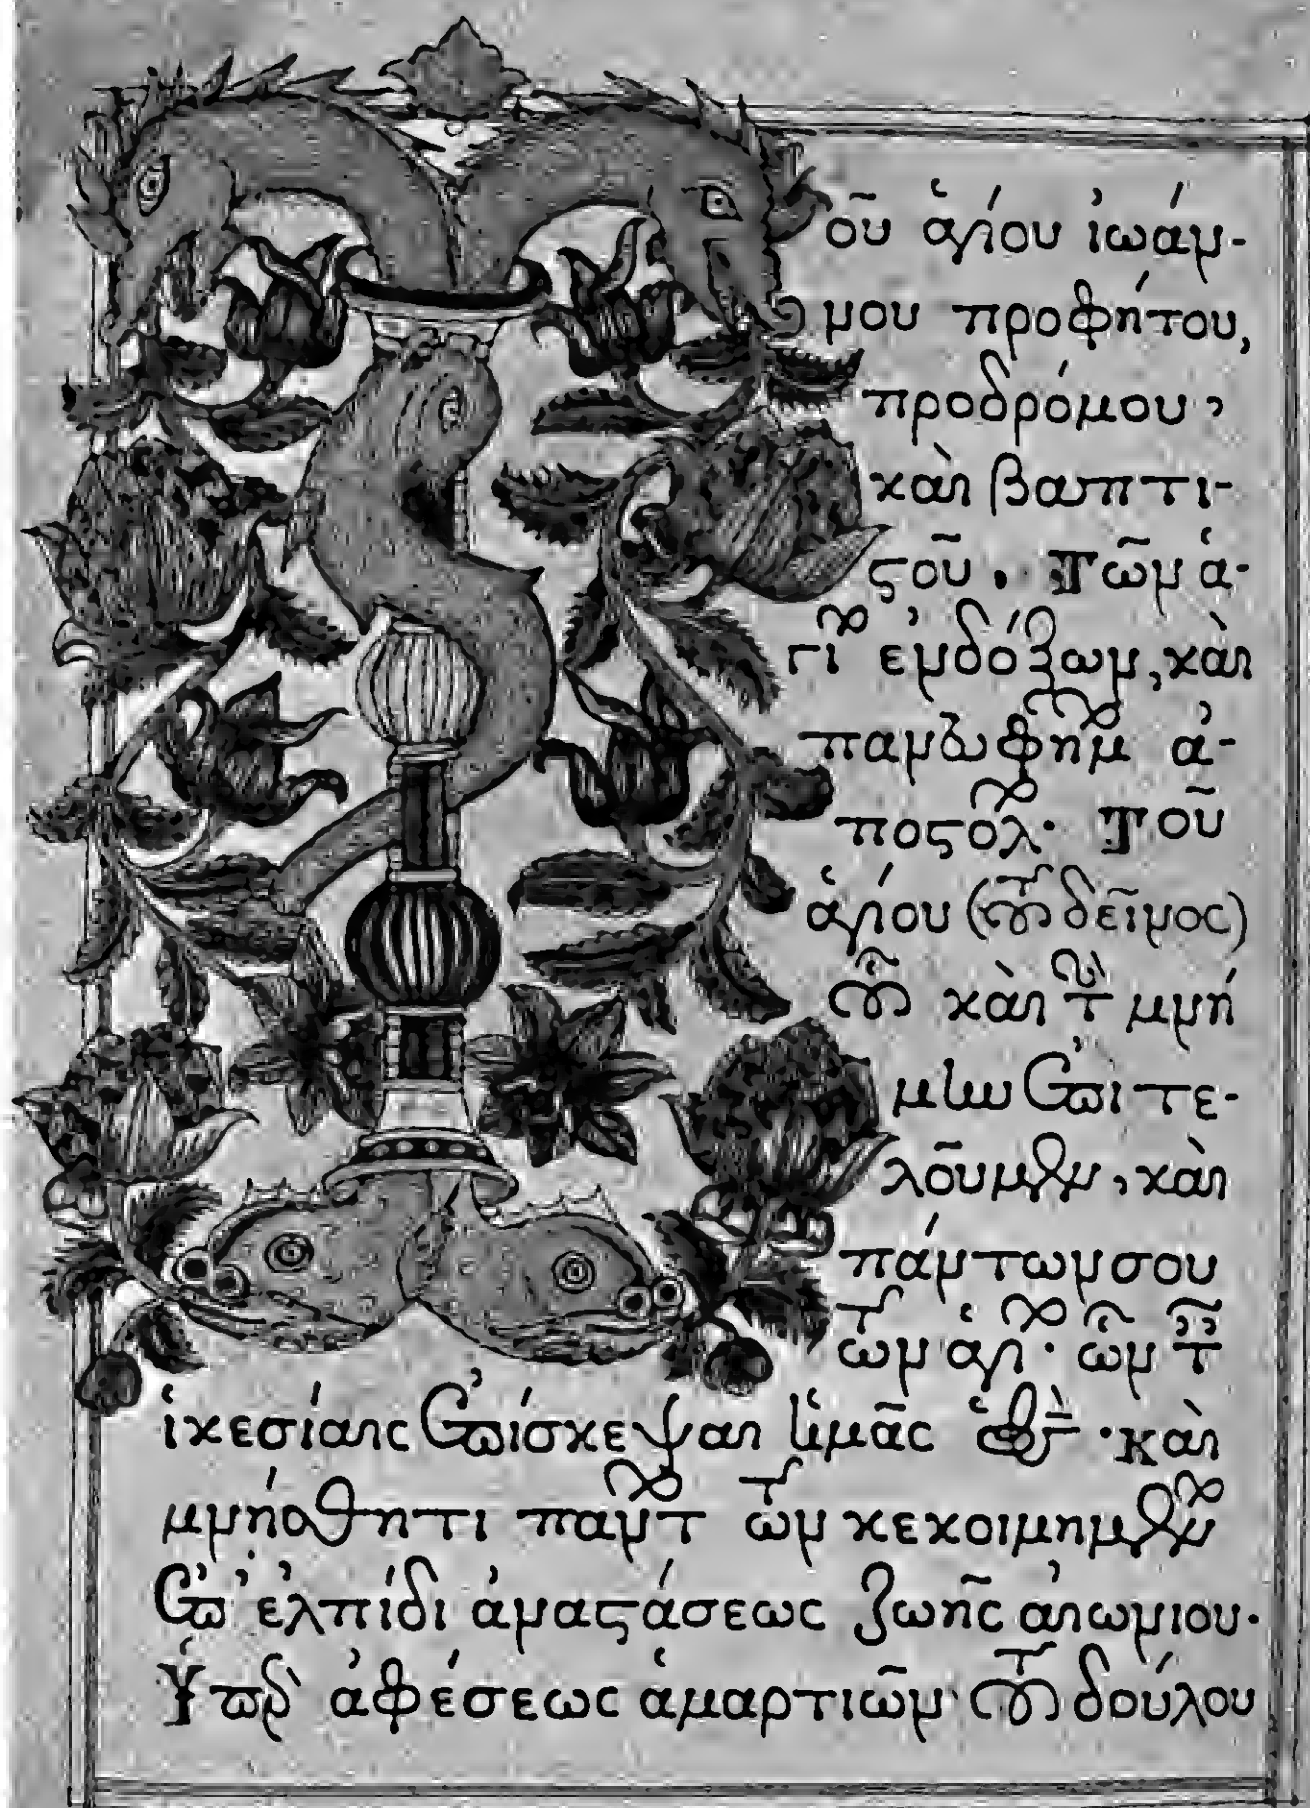 οῦ ἁγίου ἰωάν-
νου προφήτου,
προδρόμου,
καὶ βαπτι-
ςοῦ. τῶν ἁ-
γί ἐνδόξων, καὶ
πανευφήμ ἀ-
ποςόλ. τοῦ
ἁγίου (τοῦ δεῖνος)
οὗ καὶ τ μνή
μην ἐπιτε-
λοῦμεν, καὶ
πάντων σου
τῶν ἁγί. ὧν τ
ἱκεσίαις ἐπίσκεψαι ἡμᾶς ὁ θς. καὶ
μνήσθητι πάντ τῶν κεκοιμημέν
ἐπ' ἐλπίδι ἀναςάσεως ζωῆς αἰωνίου.
Ὑπὲρ ἀφέσεως ἁμαρτιῶν τοῦ δούλου